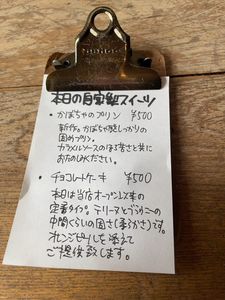 本日の自家製スイーツ
・かぼちゃのプリン ¥500
新作。かぼちゃ感しっかりの
固めプリン。
カラメルソースのほろ苦さと共に
おたのしみください。
・チョコレートケーキ ¥500
本日は当店オープン以来の
定番タイプ。テリーヌとブラウニーの
中間くらいの固さ(柔らかさ)です。
オレンジピールを添えて
ご提供致します。